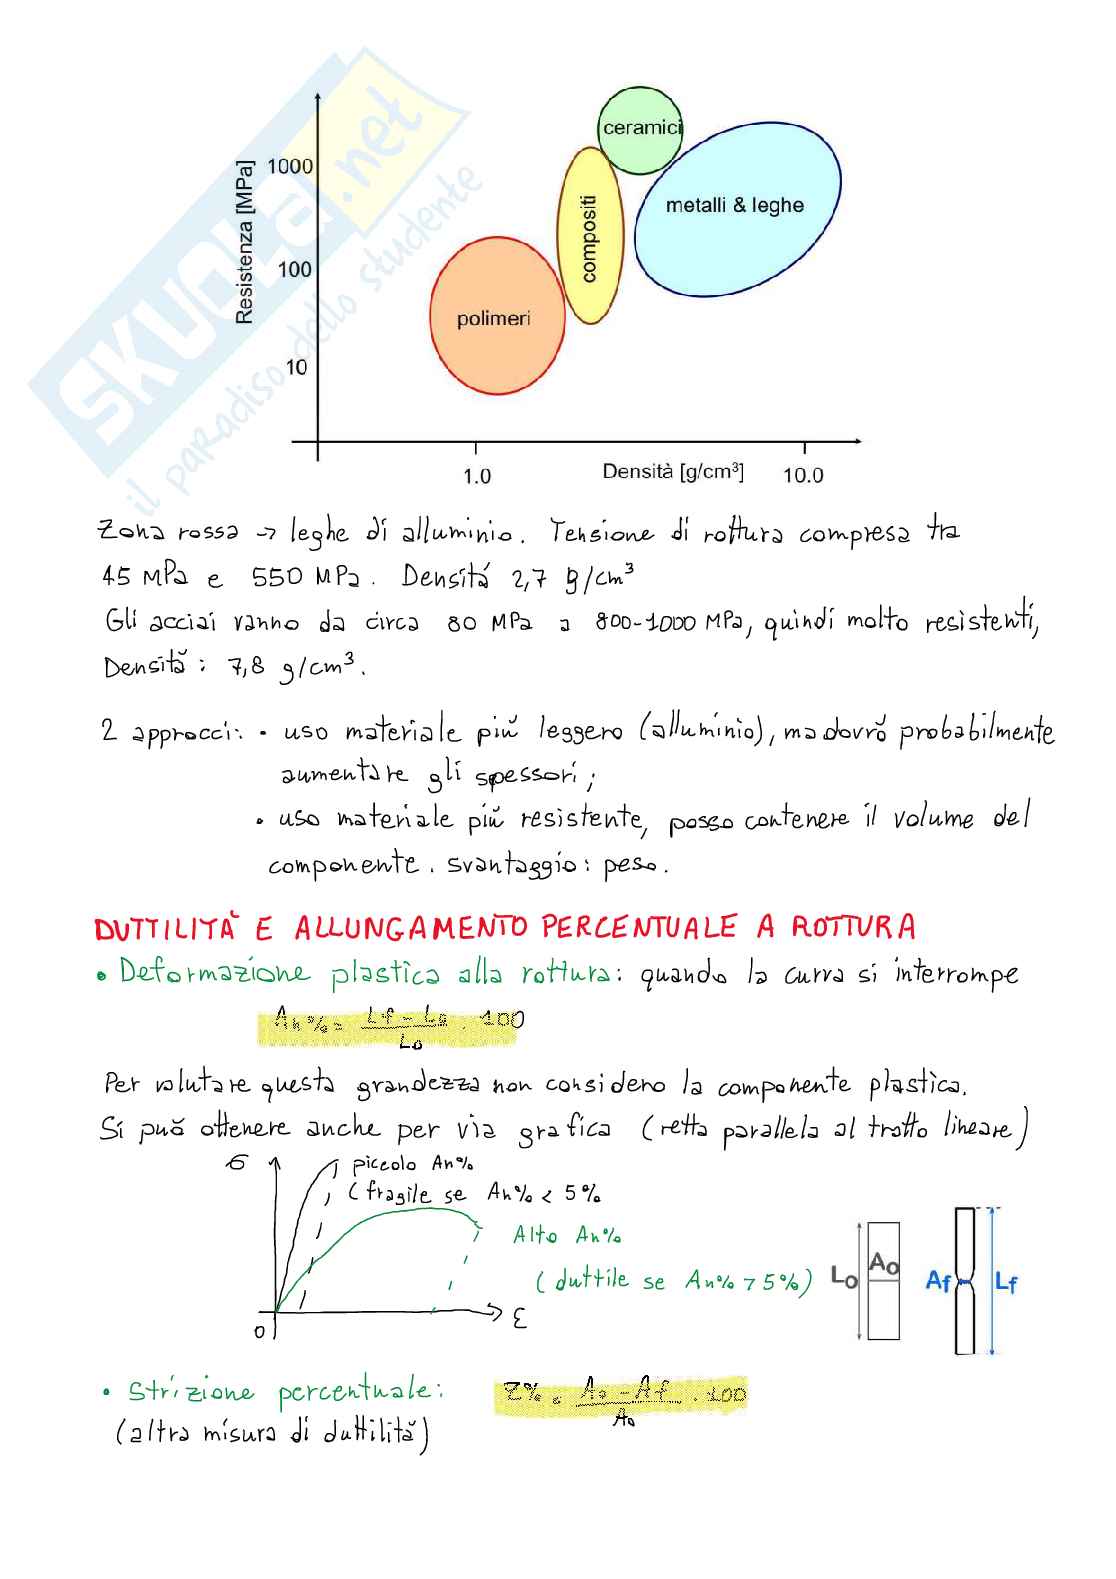 SKUOLA.net
il paradiso dello studente
Resistenza [MPa]
1000
100
10
ceramici
compositi
metalli & leghe
polimeri
1.0
Densità [g/cm³]
10.0
Zona rossa → leghe di alluminio. Tensione di rottura compresa tra
45 MPa e 550 MPa. Densitá 2,7 g/cm³
Gli acciai vanno da circa 80 MPa a 800-1000 MPa, quindi molto resistenti,
Densità: 7,8 g/cm³.
2 approcci: • uso materiale più leggero (alluminio), ma dovrò probabilmente
aumentare gli spessori;
• uso materiale più resistente, posso contenere il volume del
componente. svantaggio: peso.
DUTTILITÀ E ALLUNGAMENTO PERCENTUALE A ROTTURA
• Deformazione plastica alla rottura: quando la curva si interrompe
An% = Lf - Lo / Lo . 100
Per valutare questa grandezza non considero la componente plastica.
Si può ottenere anche per via grafica (retta parallela al tratto lineare)
σ
piccolo An%
(fragile se An% < 5%
Alto An%
(duttile se An% > 5%)
ε
0
Lo
Ao
Af
Lf
• Strizione percentuale: Z% = Ao - Af / Ao . 100
(altra misura di duttilità)